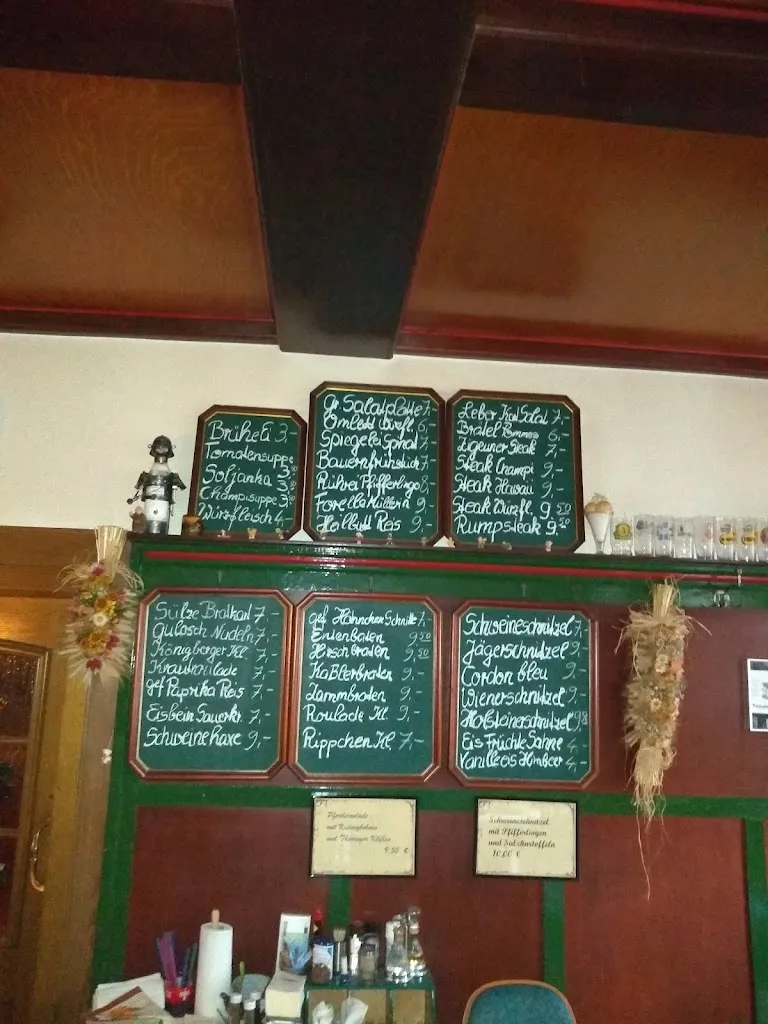 Brühe Ei 3,-
Tomatensuppe
Soljanka 3,50
Champisuppe 3,50
Würzfleisch 4,-
Gr. Salatplatte 7,-
Omlett Würfl. 6,-
Spiegelei Spinat 7,-
Bauernfrühstück 7,-
Rührei Pfifferlinge 8,-
Forelle Müllerin 9,-
Heilbutt Reis 9,-
Leber Kart Salat 7,-
Bratel Pommes 6,-
Zigeuner Steak 7,-
Steak Champi 9,-
Steak Hawai 9,-
Steak Würzfl. 9,50
Rumpsteak 9,50
Sülze Bratkart 7,-
Gulasch Nudeln 7,-
Königberger Kl. 7,-
Krautroulade 7,-
gef Paprika Reis 7,-
Eisbein Sauerkr. 7,-
Schweinehaxe 9,-
gef Hähnchen Schnitte 7,-
Entenbraten 9,50
Hirschbraten 9,50
Kaßlerbraten 9,-
Lammbraten 9,-
Roulade Kl. 9,-
Rippchen Kl. 7,-
Schweineschnitzel 7,-
Jägerschnitzel 9,-
Cordon bleu 9,-
Wienerschnitzel 9,-
Holsteinerschnitzel 9,8
Eis Früchte Sahne 4,-
Vanilleeis Himbeer 4,-
Pferderoulade
mit Rotkohl
und Thüringer Klößen
9.50 €
Schweineschnitzel
mit Pfifferlingen
und Salzkartoffeln
10,00 €